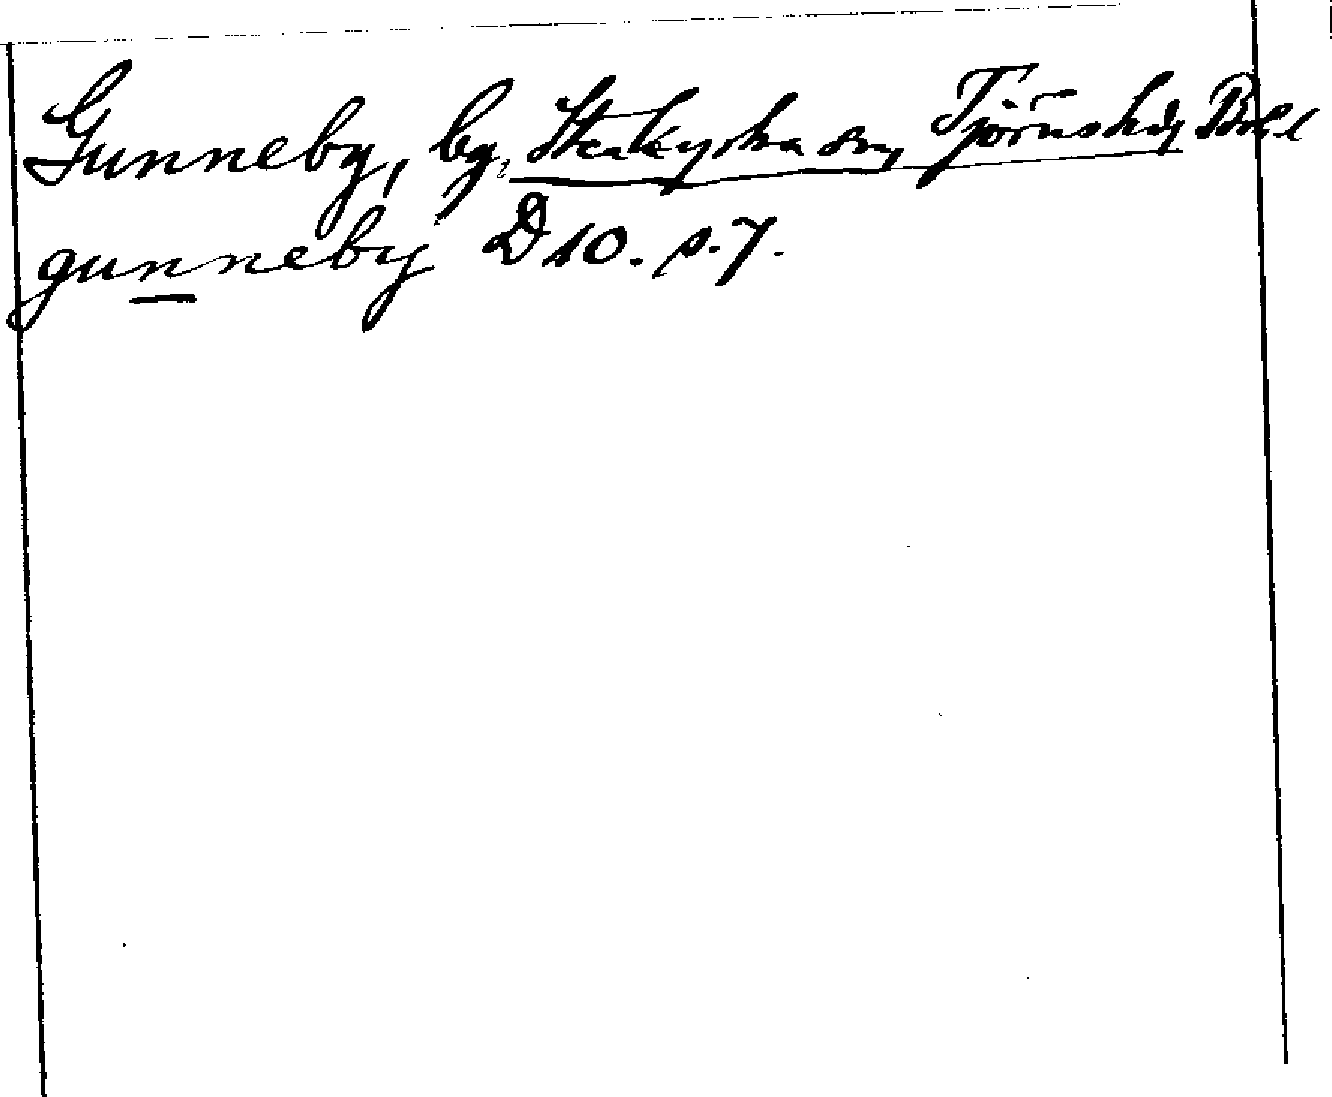 Gunneby, by, Stenkyrka sn, Tjörns hd, Bohl
gunneby D 10. s. 7.